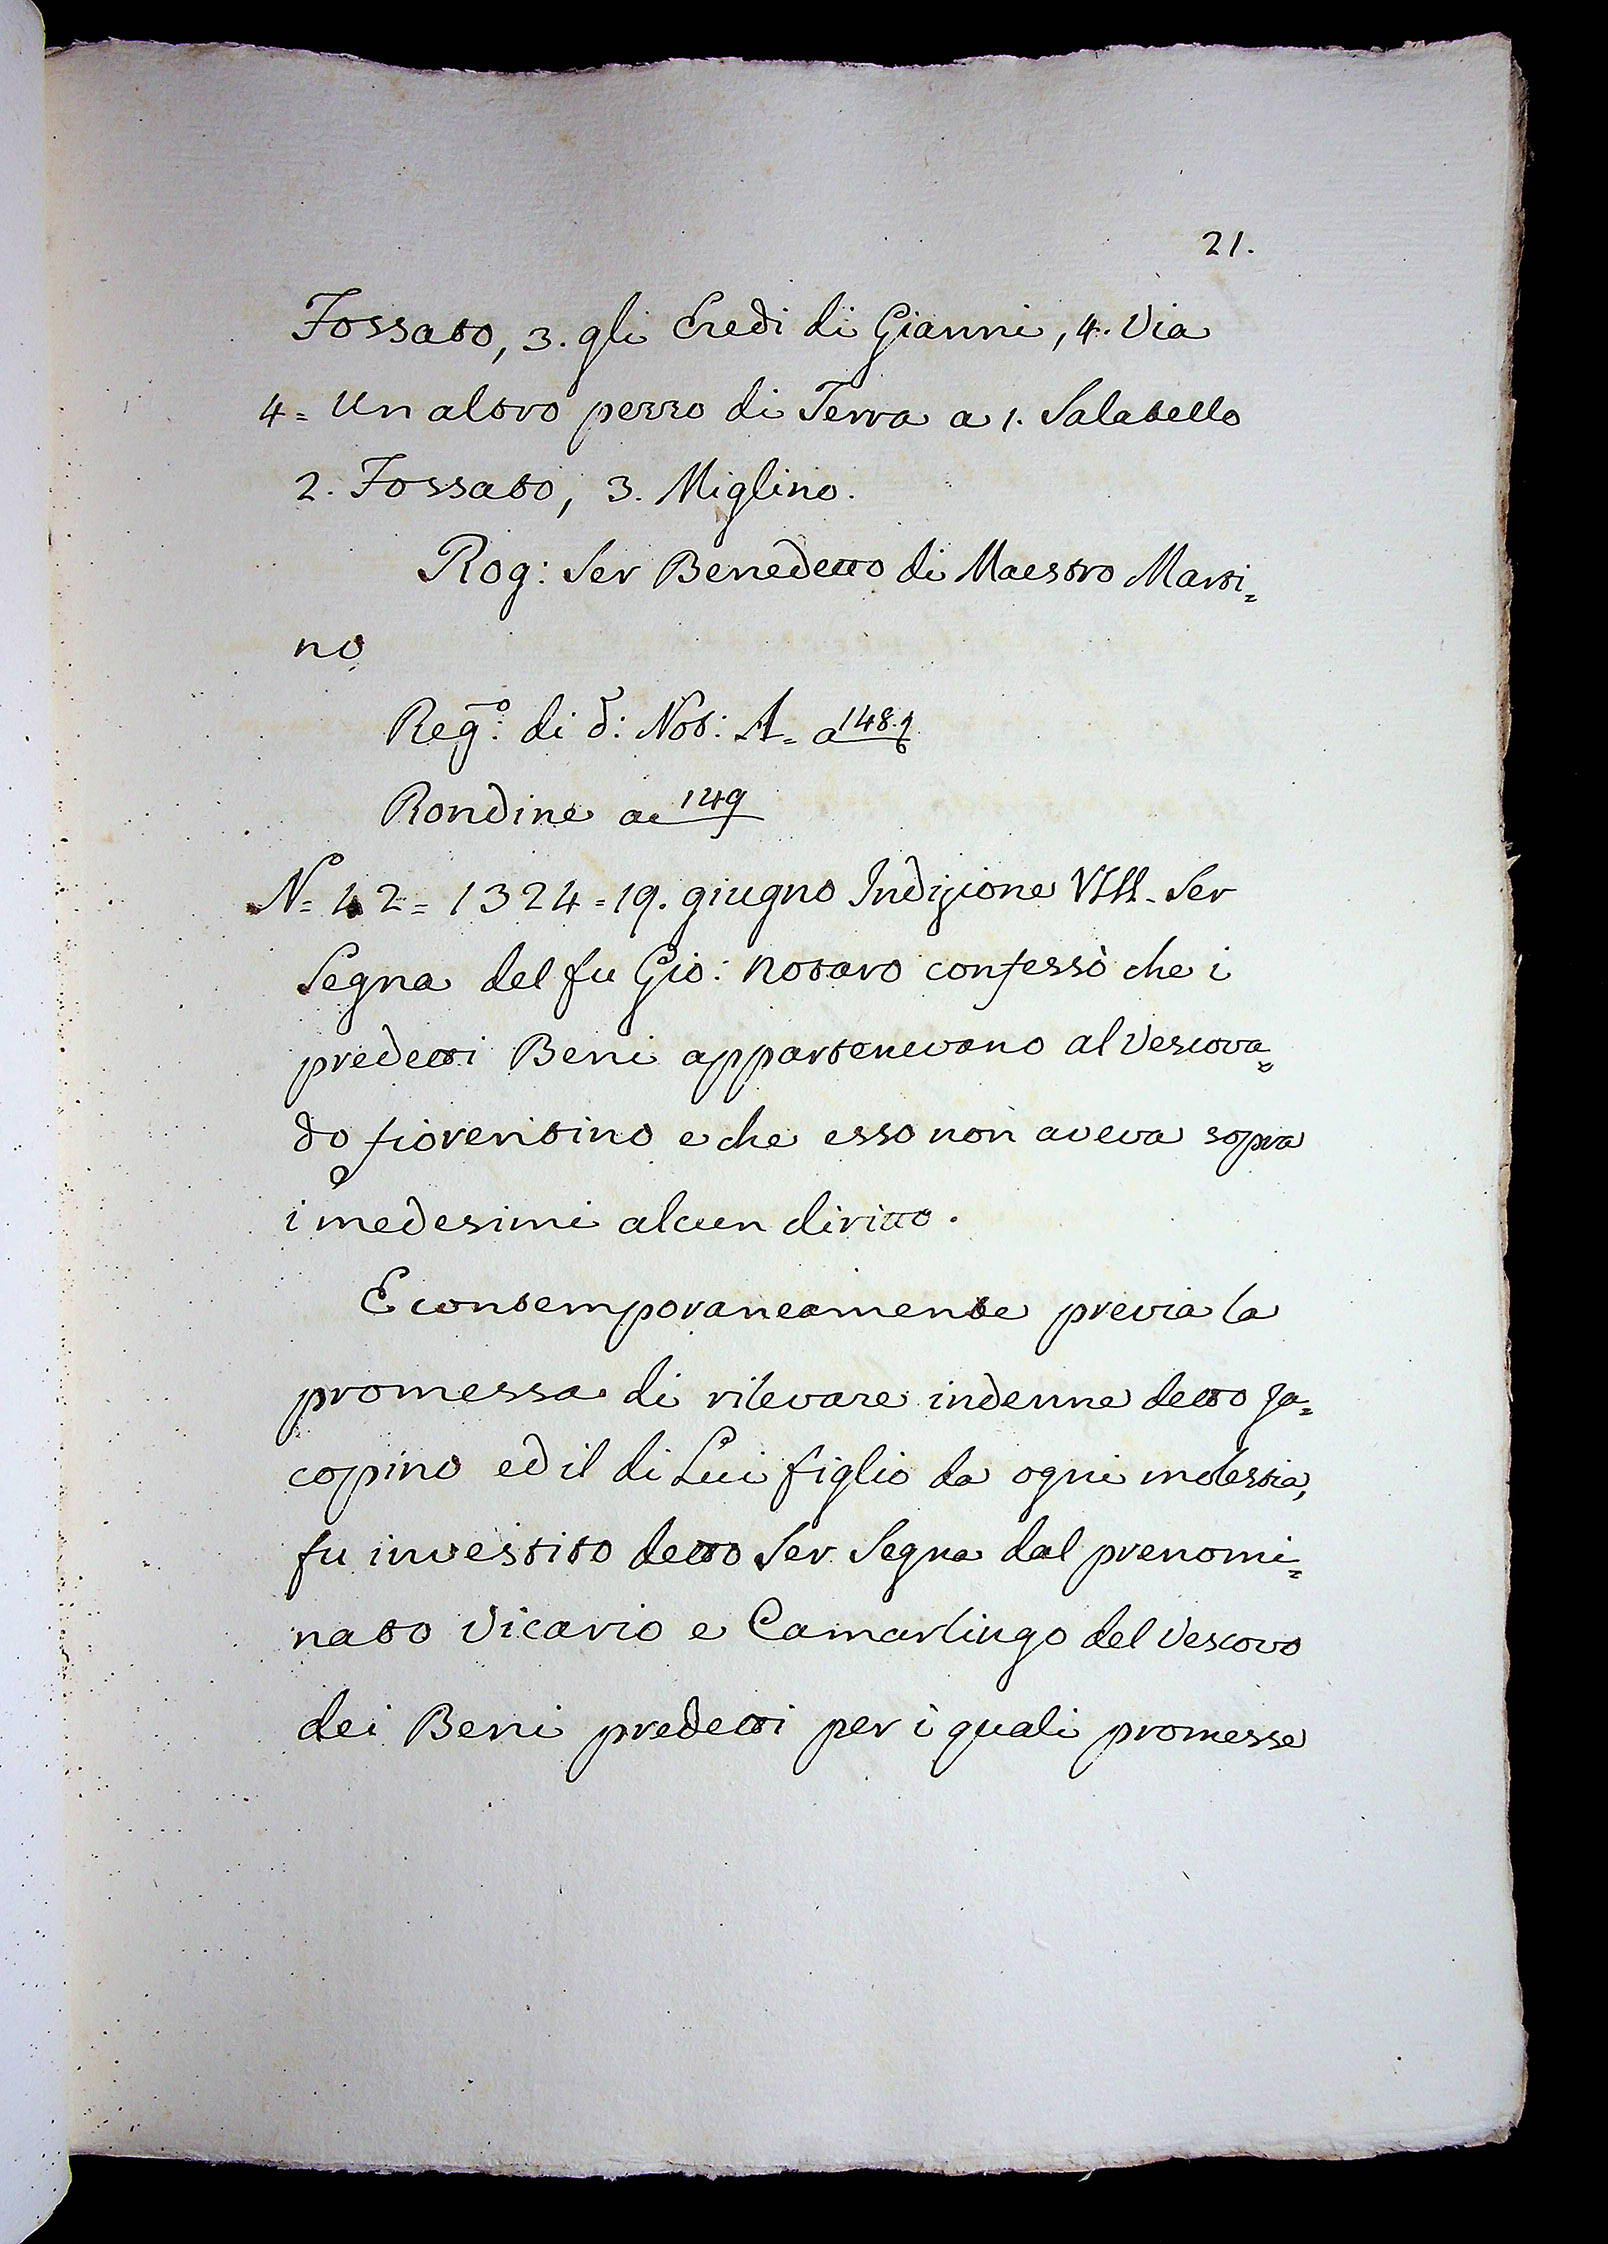 21.
Fossato, 3. gli Eredi di Gianni, 4. Via
4= Un altro pezzo di Terra a 1. Salatello
2. Fossato, 3. Miglino.
Rog: Ser Benedetto di Maestro Marti=
no
Reg.º di d: Not: A= a 148.
Rondine a 149
Nº= 42= 1324=19. giugno Indizione VIII. Ser
Segna del fu Gio: Notaro confessò che i
predetti Beni appartenevano al Vescova=
do fiorentino e che esso non aveva sopra
i medesimi alcun diritto.
E contemporaneamente previa la
promessa di rilevare indenne detto Ja=
copino ed il di Lui figlio da ogni molestia,
fu investito detto Ser Segna dal prenomi=
nato Vicario e Camarlingo del Vescovo
dei Beni predetti per i quali promesse